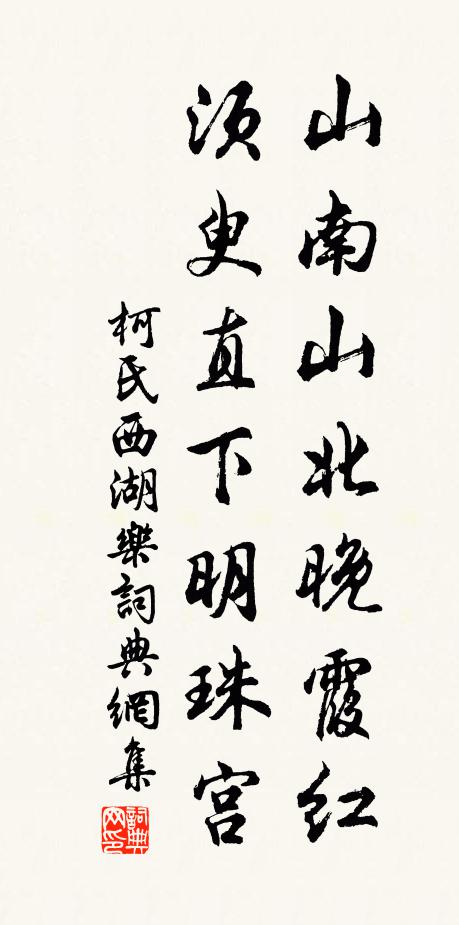 山南山北晚霞红
须臾直下明珠宫
柯氏西湖樂詞典網集
詞典网印